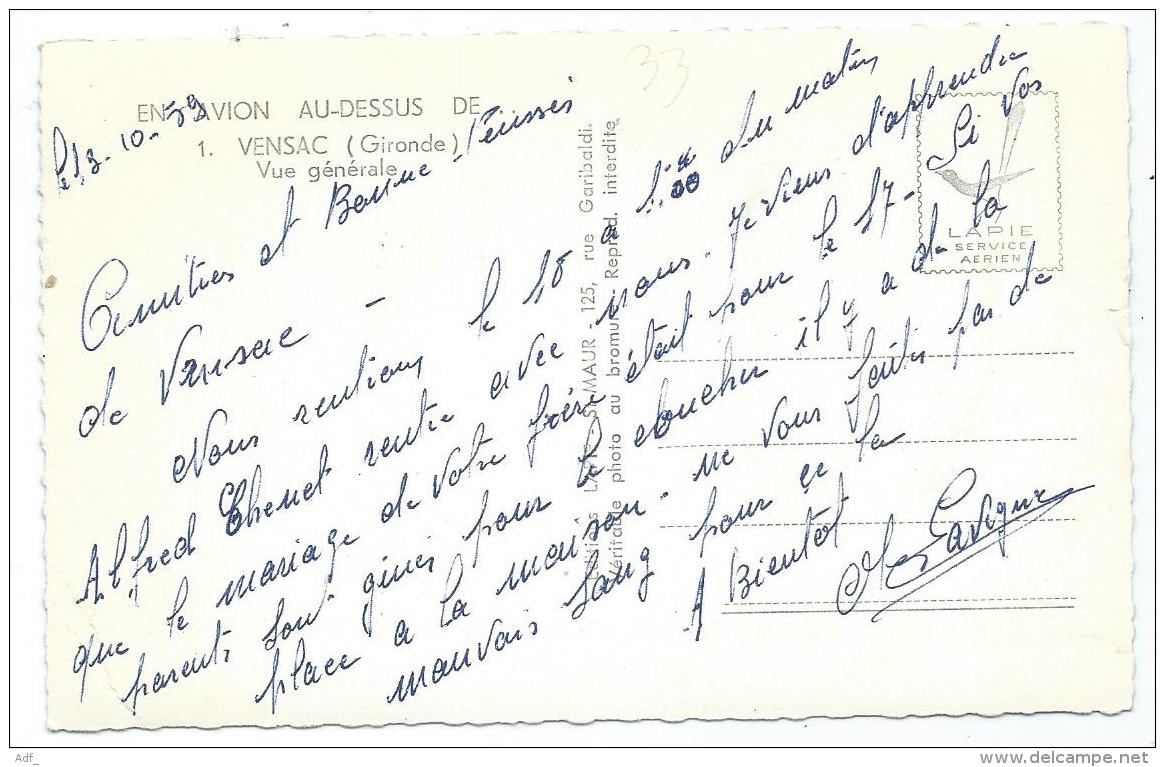 33
EN AVION AU-DESSUS DE
1. VENSAC (Gironde)
Vue générale
le 13-10-59
Amitiés et Bonne Pensées
de Vensac -
Nous rentions le 18 a du matin
Alfred Ehenet rentre avec nous. Je viens d'apprendre
que le mariage de votre frère était pour le 17- Si vos
parents sont gines pour le choucher il y a de la
place a la maison. ne vous faites pas de
mauvais sang pour ce la
A Bientôt
Lavigne
LAPIE
SERVICE
AERIEN
LAPIE ST-MAUR - 125, rue Garibaldi.
Véritable photo au bromure - Reprod. interdite
Adf_
www.delcampe.net